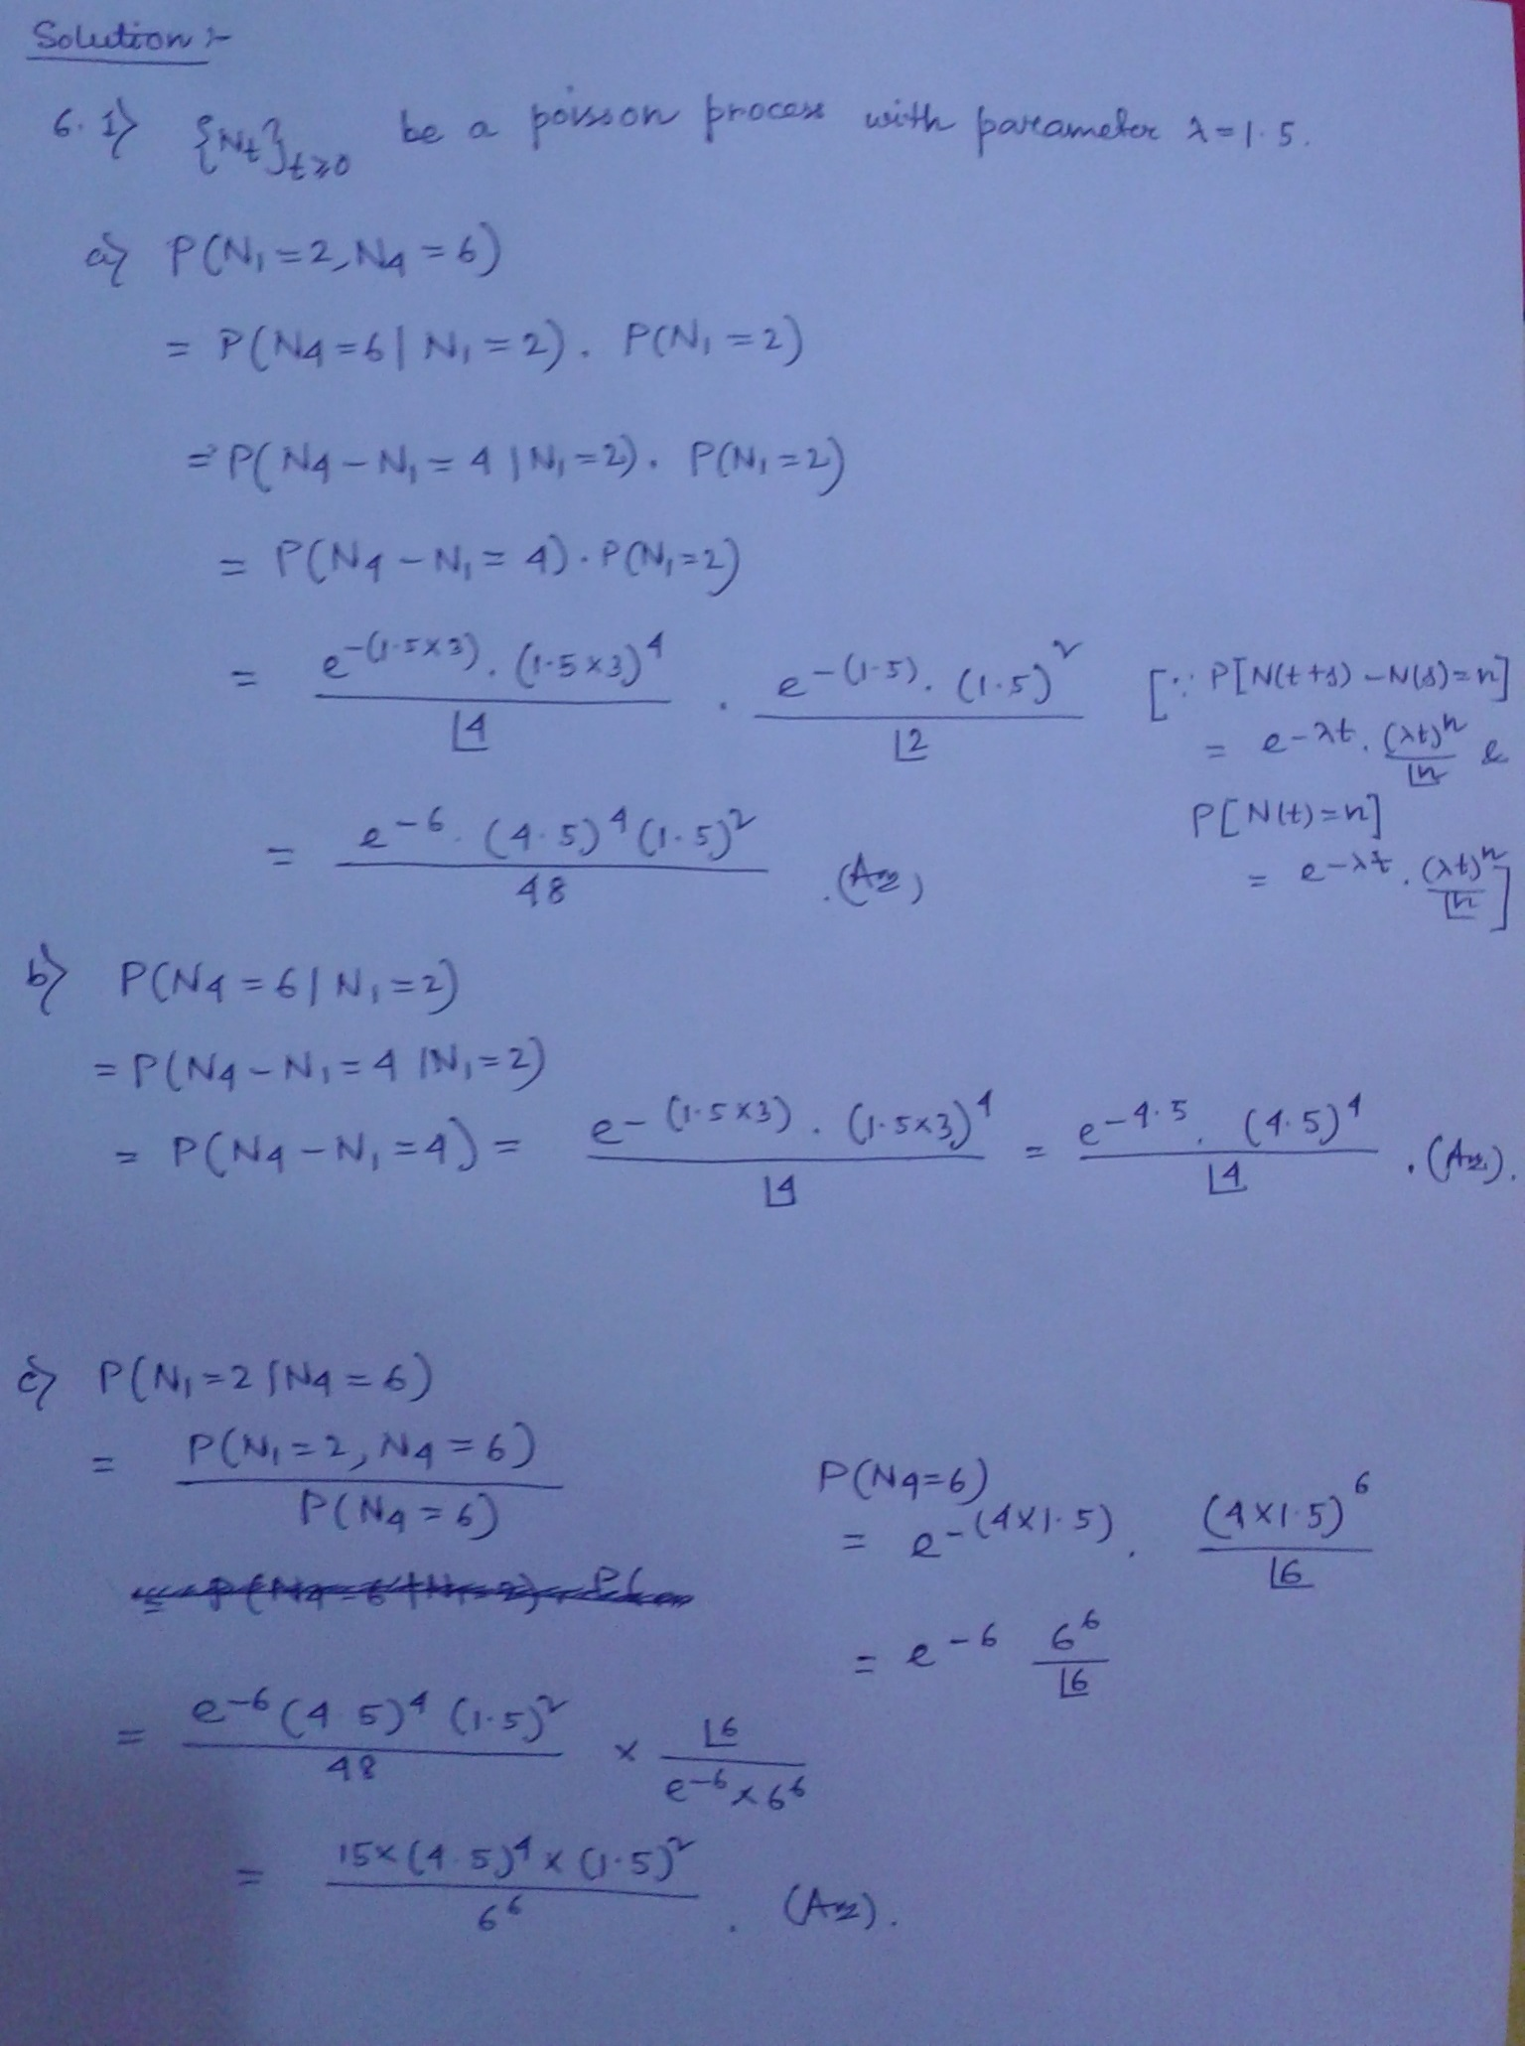 Solution :-
6.1) {Nt}t≥0 be a poisson process with parameter λ=1.5.
a) P(N₁=2, N₄=6)
= P(N₄=6 | N₁=2). P(N₁=2)
= P(N₄-N₁=4 | N₁=2). P(N₁=2)
= P(N₄-N₁=4). P(N₁=2)
= e^-(1.5×3). (1.5×3)^4 / ⌊4 . e^-(1.5). (1.5)^2 / ⌊2 [∵ P[N(t+s)-N(s)=n]
= e^-λt. (λt)^n / ⌊n &
P[N(t)=n]
= e^-λt. (λt)^n / ⌊n]
= e^-6. (4.5)^4 (1.5)^2 / 48 . (Ans)
b) P(N₄=6 | N₁=2)
= P(N₄-N₁=4 | N₁=2)
= P(N₄-N₁=4) = e^-(1.5×3). (1.5×3)^4 / ⌊4 = e^-4.5. (4.5)^4 / ⌊4 . (Ans).
c) P(N₁=2 | N₄=6)
= P(N₁=2, N₄=6) / P(N₄=6)
P(N₄=6)
= e^-(4×1.5). (4×1.5)^6 / ⌊6
= e^-6 6^6 / ⌊6
= e^-6 (4.5)^4 (1.5)^2 / 48 × ⌊6 / e^-6×6^6
= 15×(4.5)^4×(1.5)^2 / 6^6 . (Ans).